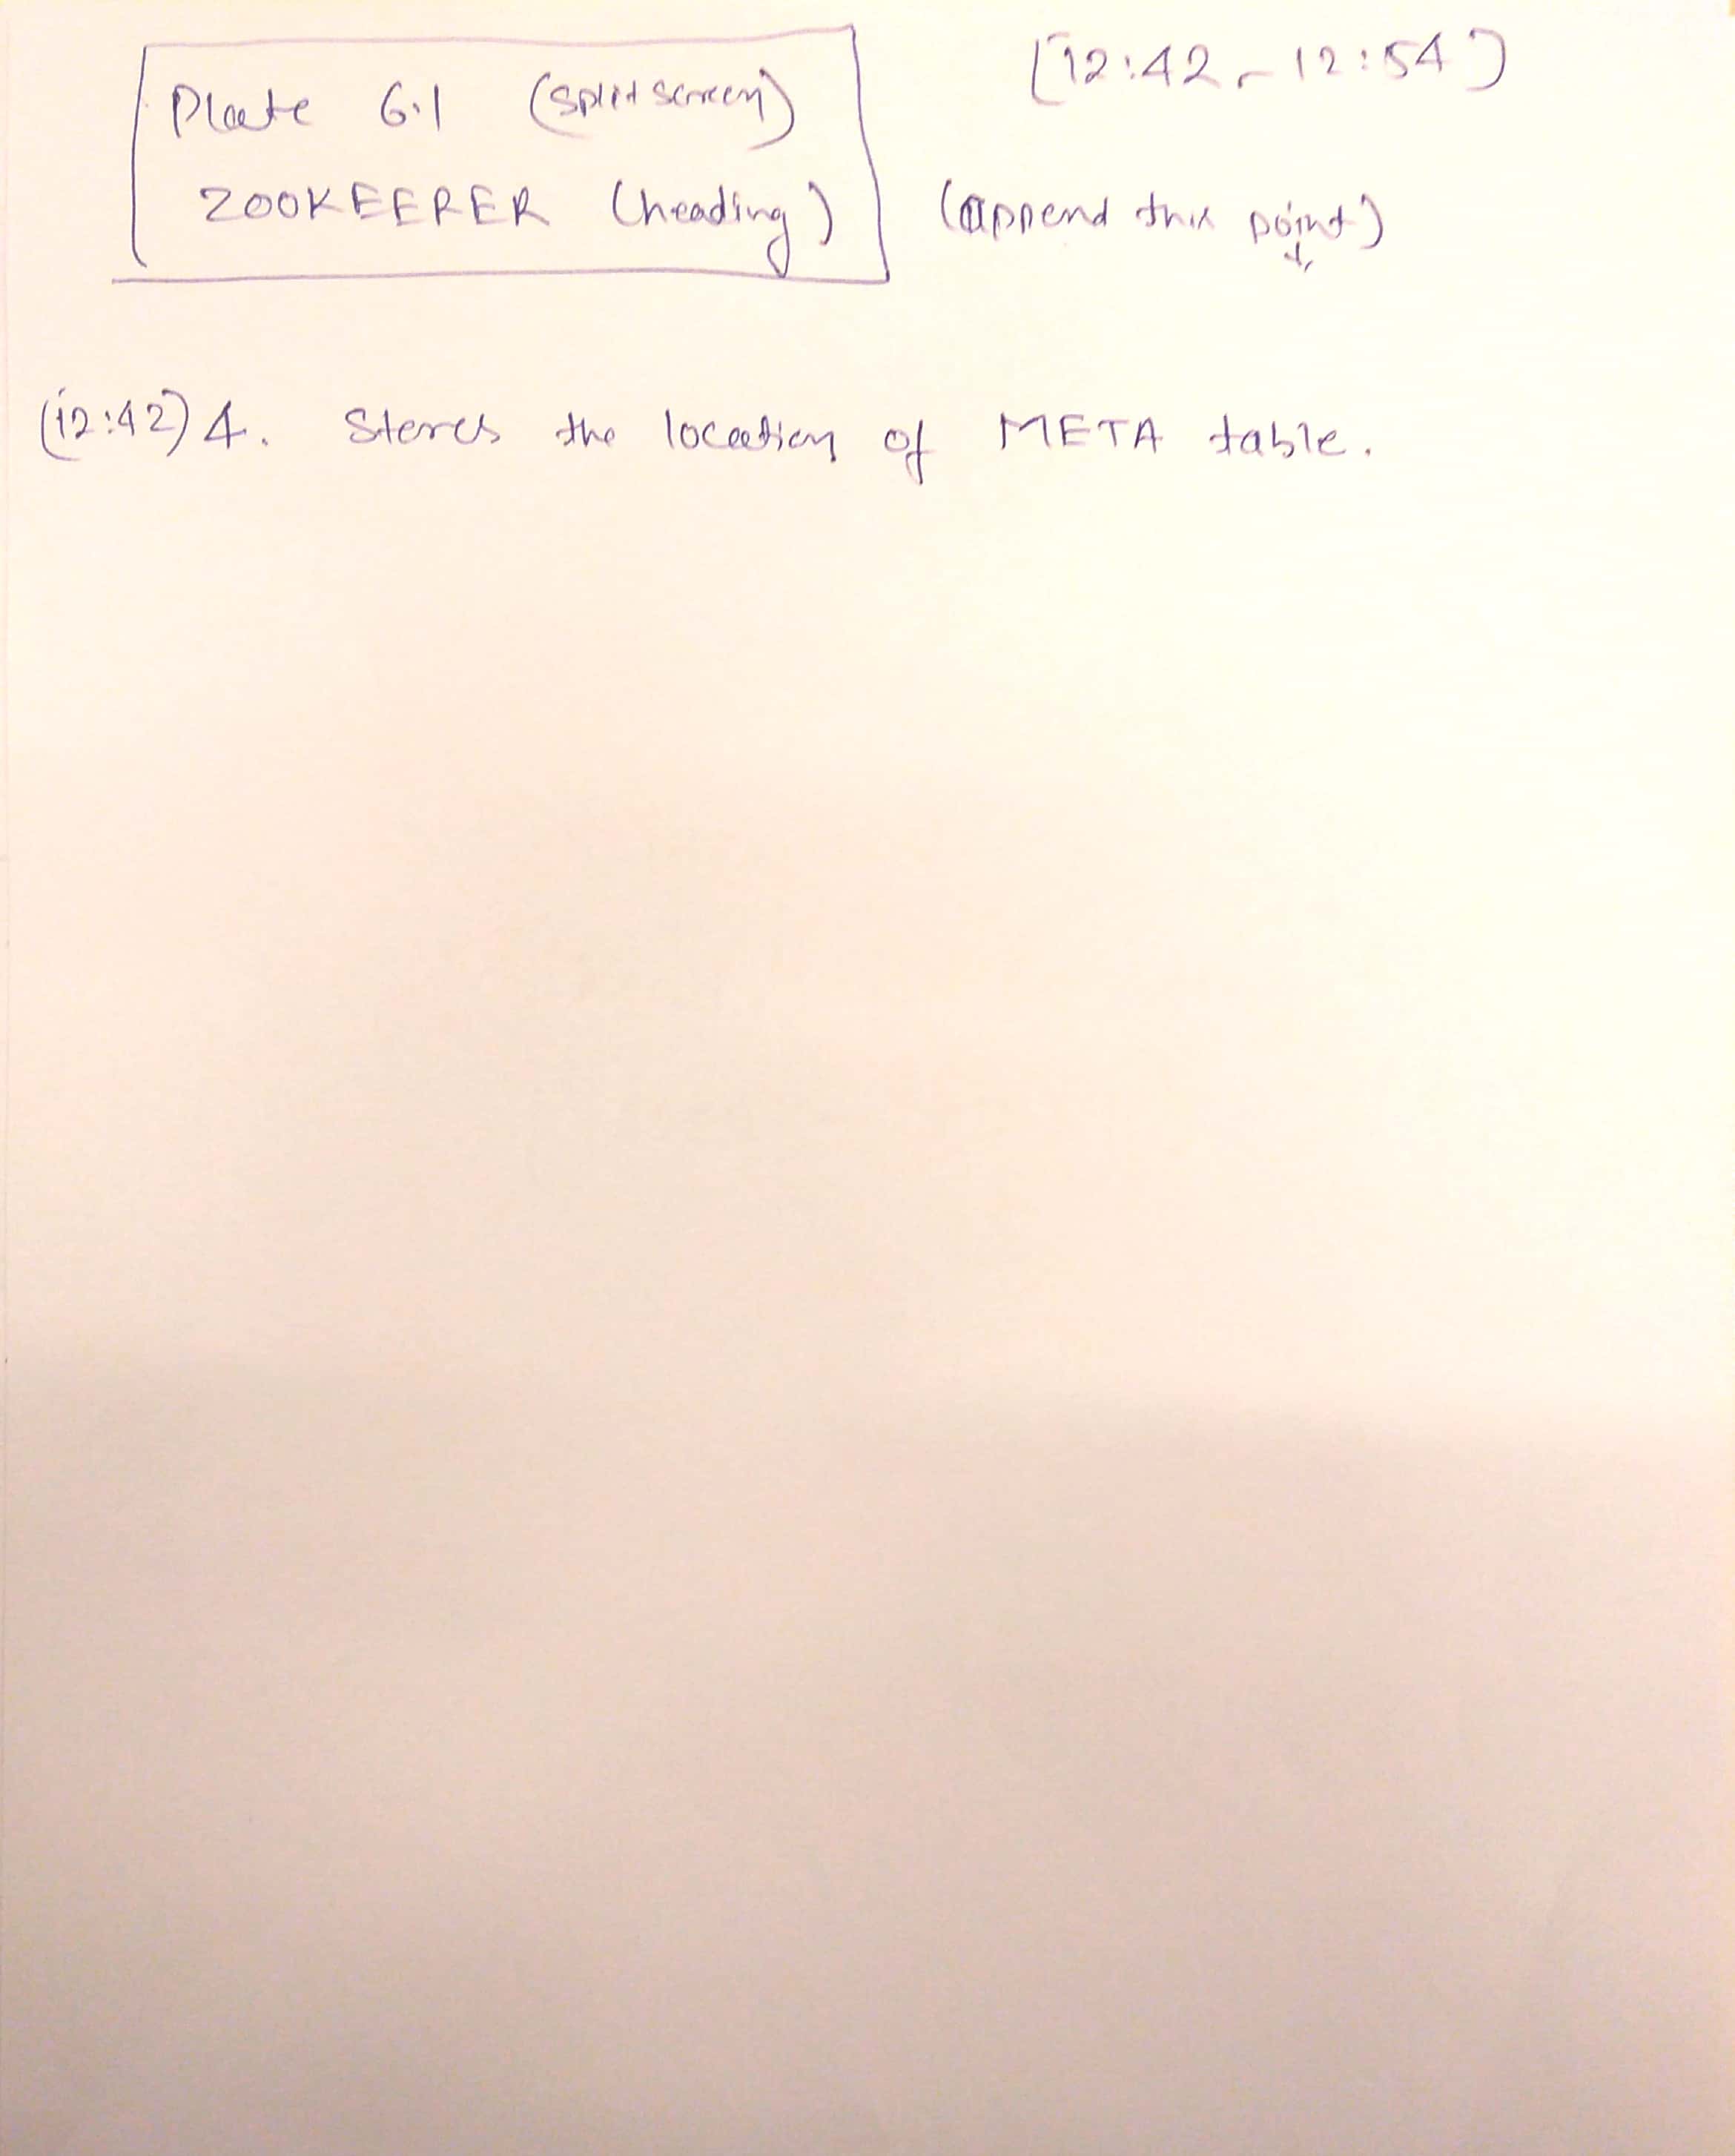 Plate 6.1 (split screen) [12:42 - 12:54]
ZOOKEEPER (heading) (append this point)
(12:42) 4. Stores the location of META table.